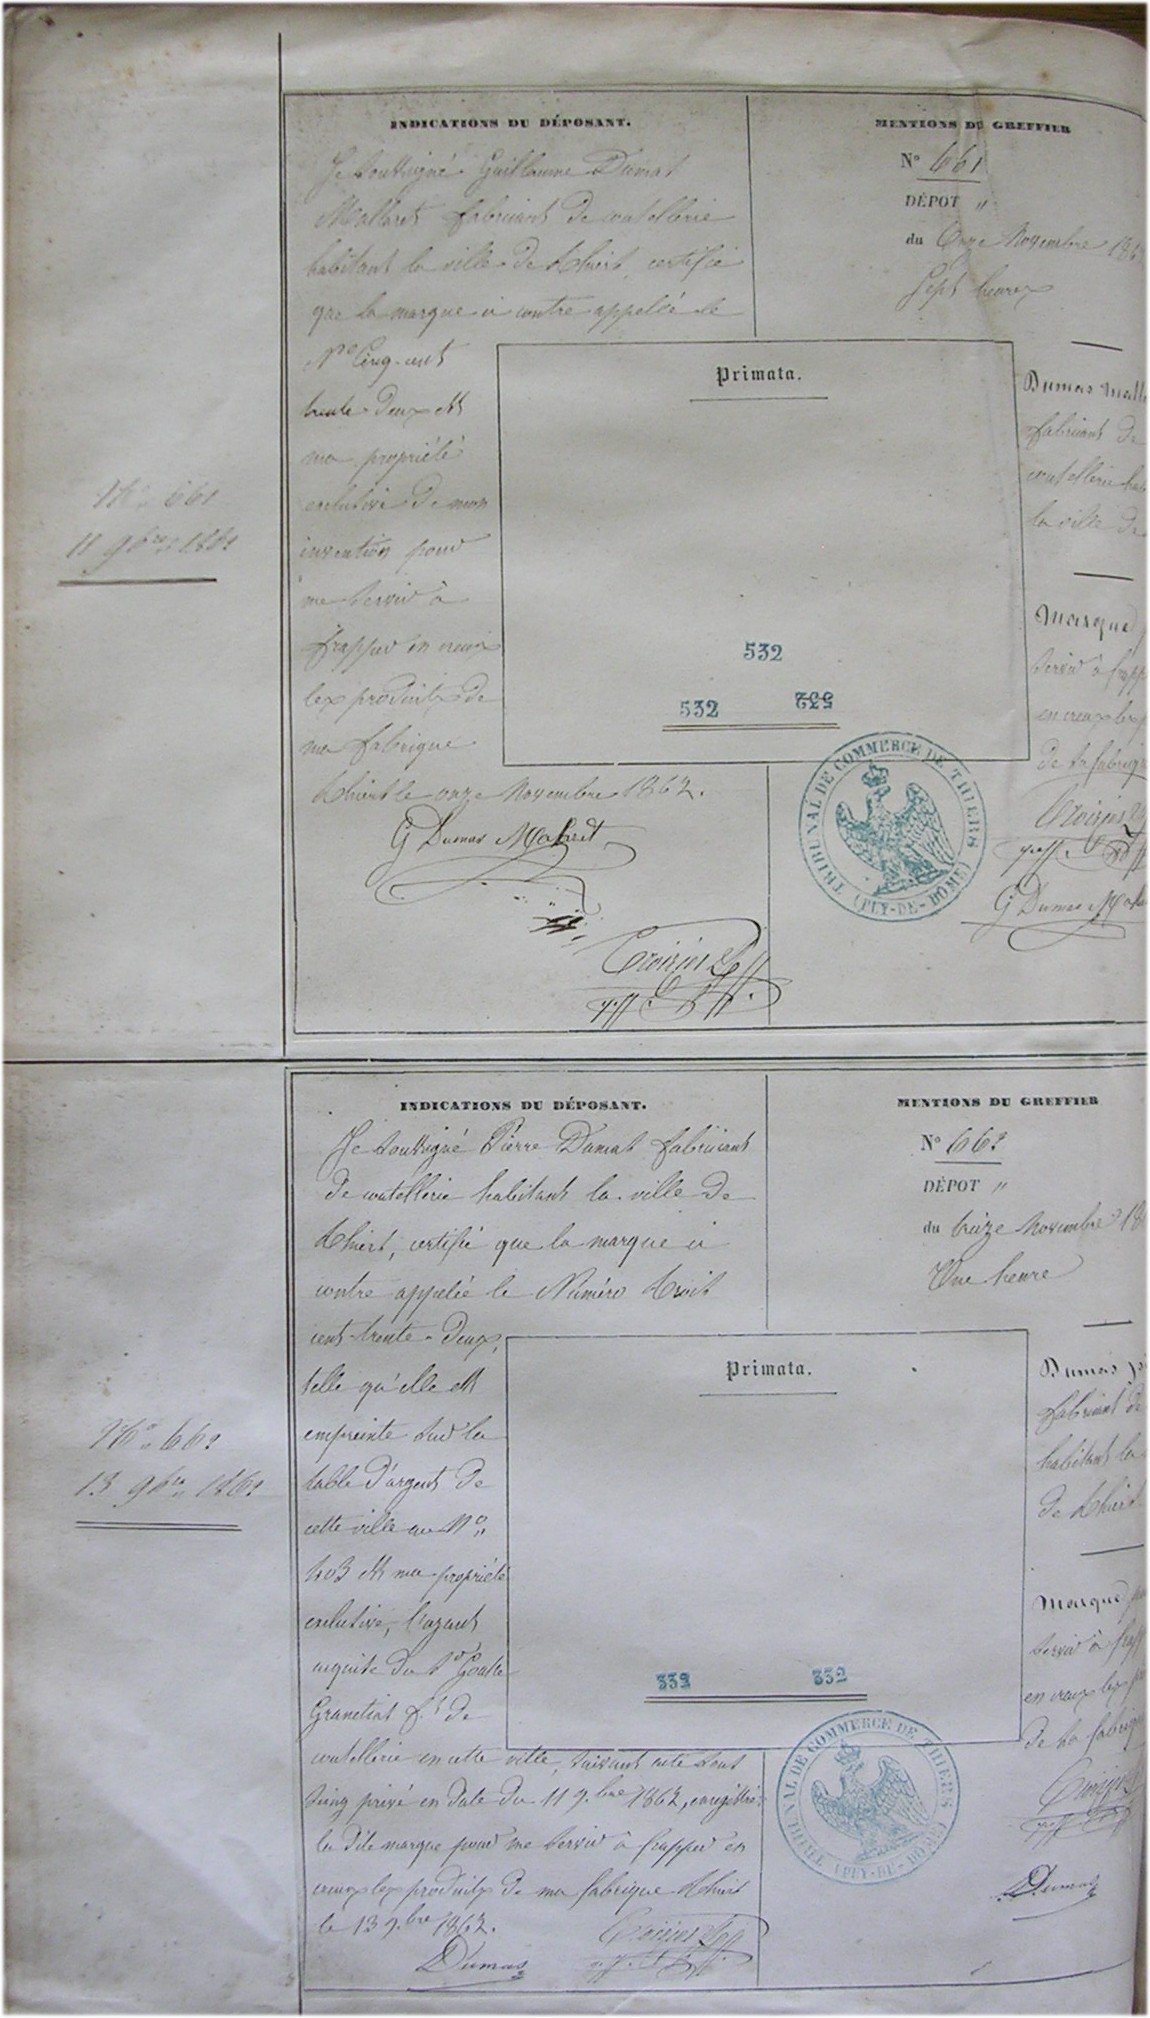 INDICATIONS DU DÉPOSANT.
Je soussigné Guillaume Dumas
Mallaret fabricant de coutellerie
habitant la ville de Thiers, certifie
que la marque ci contre appellée le
N.ro Cinq-cent
trente-deux est
ma propriété
exclusive de mon
invention pour
me servir à
frapper en creux
les produits de
ma fabrique
Thiers le onze Novembre 1862.
G Dumas Malaret
Croizier
MENTIONS DU GREFFIER
N° 661
DÉPOT "
du Onze Novembre 186
Sept heures
Primata.
532
532 532
Dumas Malla
fabricant de
coutellerie hab
la ville de
Marque
servir à frapp
en creux les p
de sa fabriq
Croizier
G Dumas Mala
TRIBUNAL DE COMMERCE DE THIERS
(PUY-DE-DÔME)
N° 661
11 9bre 1862
INDICATIONS DU DÉPOSANT.
Je soussigné Pierre Dumas fabricant
de coutellerie habitant la ville de
Thiers, certifie que la marque ci
contre appelée le Numéro trois
cent-trente-deux,
telle qu'elle est
empreinte sur la
table d'argent de
cette ville au N°
403 est ma propriété
exclusive, l'ayant
acquise du Sr
f.t de
coutellerie en cette ville, suivant acte sous
seing privé en date du 11 9.bre 1862, enregistré,
la dite marque pour me servir à frapper en
creux les produits de ma fabrique Thiers
le 13 9.bre 1862.
Dumas
Croizier
MENTIONS DU GREFFIER
N° 662
DÉPOT "
du treize Novembre 18
Une heure
Primata.
332 332
Dumas
fabricant de
habitant la
de Thiers
Marque p
servir à frapp
en creux les p
de sa fabriq
Croizier
Dumas
TRIBUNAL DE COMMERCE DE THIERS
(PUY-DE-DÔME)
N° 662
13 9bre 1862